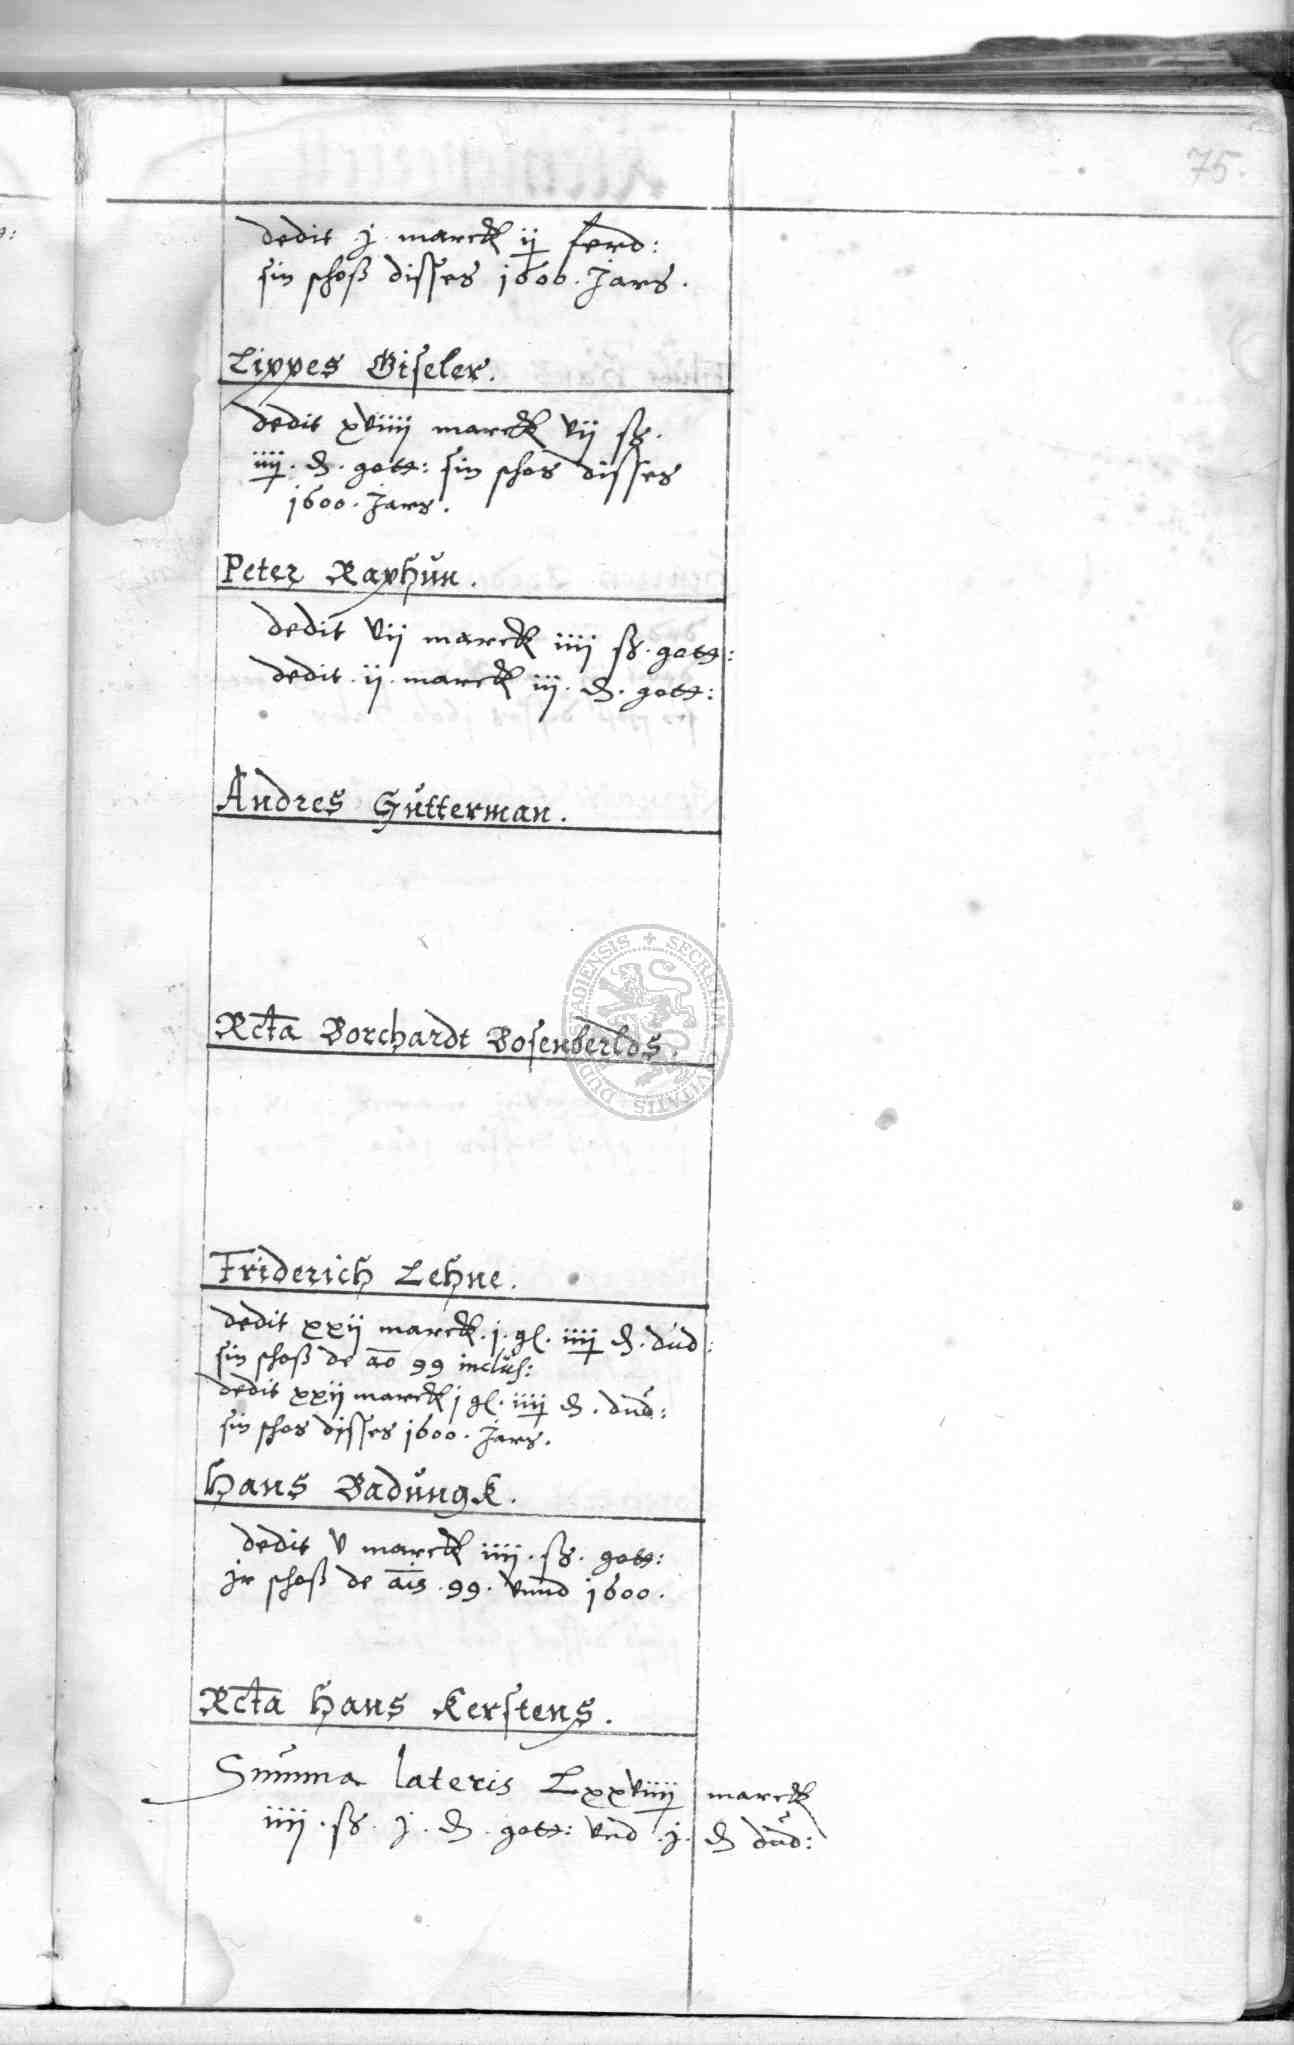 75.
dedit j marck ij ferd:
sin schoß disses 1600. Jars.
Lippes Giseler.
dedit xviiij marck vij ß.
iiij. d. gott: sin schos disses
1600. Jars.
Peter Raphun.
dedit vij marck iiij ß. gott:
dedit. ij. marck iij. d. gott:
Andres Gutterman.
Rcta Borchardt Bosenberlds.
Friderich Lehne.
dedit xxij marck. j. gl. iiij d. dud:
sin schoß de ao 99 inclus:
dedit xxij marck j gl. iiij d. dud:
sin schos disses 1600. Jars.
Hans Badungk.
dedit v marck iiij. ß. gott:
jr schoß de ais. 99. vnnd 1600.
Rcta Hans Kerstens.
Summa lateris Lxxviiij marck
iiij. ß. j. d. gott: vnd. j. d dud:
SECRETUM